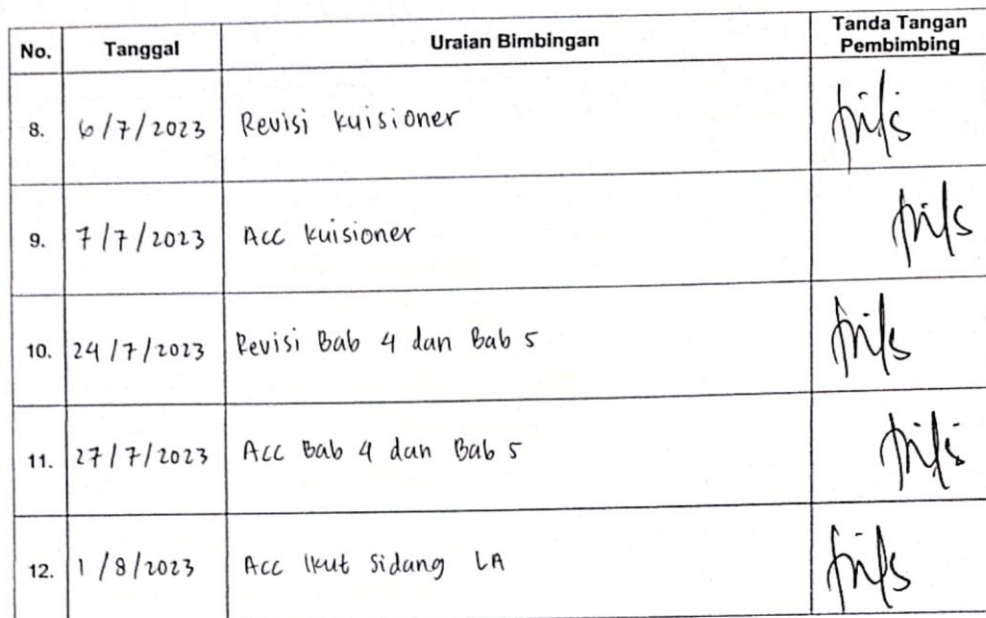 No. Tanggal Uraian Bimbingan Tanda Tangan
Pembimbing
8. 6/7/2023 Revisi kuisioner
9. 7/7/2023 Acc kuisioner
10. 24/7/2023 Revisi Bab 4 dan Bab 5
11. 27/7/2023 Acc Bab 4 dan Bab 5
12. 1/8/2023 Acc Ikut Sidang LA